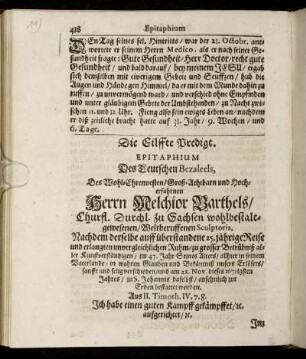 418 Epitaphium
DEn Tag seines sel. Hintritts / war der 23. Octobr. ant-
wortete er seinem Herrn Medico, als er nach seiner Ge-
sundheit fragte: Gute Gesundheit / Herr Doctor / recht gute
Gesundheit / und bald darauf / bey meinem JESU / ergab
sich demselben mit eiverigem Gebete und Seuffzen / hub die
Augen und Hände gen Himmel / da er mit dem Munde dahin zu
ruffen / zu unvermögend ward / und verschied ohne Empfinden
und unter gläubigem Gebete der Umbstehenden / zu Nacht zwi-
schen 11. und 12. Uhr. Fieng also sein ewiges Leben an / nachdem
er das zeitliche bracht hatte auf 31. Jahr / 9. Wochen / und
6. Tage.
Die Eilffte Predigt.
EPITAPHIUM
Des Teutschen Bezaleels,
Des Wohl-Ehrenvesten / Groß-Achtbarn und Hoch-
erfahrnen
Herrn Melchior Barthels /
Churfl. Durchl. zu Sachsen wohlbestalt-
gewesenen / Weltberuffenen Sculptoris,
Nachdem derselbe auff überstandene 25. jährige Reise
und erlangten unvergleichlichen Ruhm / zu grosser Betrübniß al-
ler Kunstverständigen / im 47. Jahr Seines Alters / alhier in seinem
Vaterlande / in wahren Glauben und Bekäntniß unsers Erlösers /
sanfft und selig verschieden / und am 22. Nov. dieses 1672igsten
Jahres / zu S. Johannis daselbst / ansehnlich zur
Erden bestattet worden.
Aus II. Timoth. IV. 7. 8.
Ich habe einen guten Kampff gekämpffet / ꝛc.
aufgerichtet / ꝛc.
Im